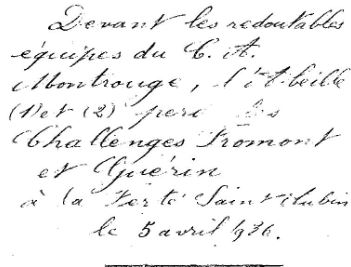 Devant les redoutables
équipes du C. A.
Montrouge, l'Abeille
(1) et (2) perd les
Challenges Fromont
et Guérin
à la Ferté Saint Aubin
le 5 avril 1936.